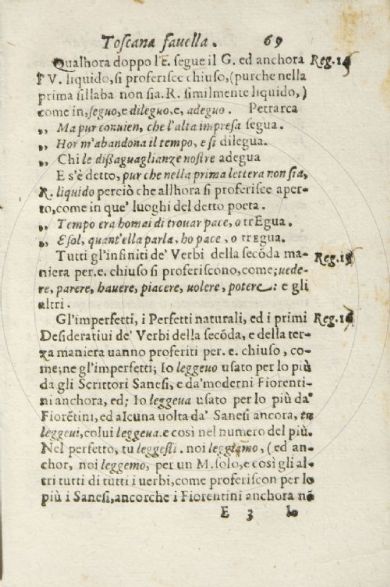 Toscana favella. 69
Qualhora doppo l'E. segue il G. ed anchora Reg. 14
l'V. liquido, si proferisce chiuso, (purche nella
prima sillaba non sia. R. similmente liquido, )
come in, seguo, e dileguo, e, adeguo. Petrarca
„ Ma pur conuien, che l'alta impresa segua.
„ Hor m'abandona il tempo, e si dilegua.
„ Chi le dissaguaglianze nostre adegua
E s'è detto, pur che nella prima lettera non sia,
R. liquido perciò che allhora si proferisce aper-
to, come in que' luoghi del detto poeta.
„ Tempo era homai di trouar pace, o trEgua.
„ E sol, quant'ella parla, ho pace, o trEgua.
Tutti gl'infiniti de' Verbi della secōda ma- Reg. 15
niera per. e. chiuso si proferiscono, come; uede-
re, parere, hauere, piacere, uolere, potere: e gli
altri.
Gl'imperfetti, i Perfetti naturali, ed i primi Reg. 16
Desiderativi de' Verbi della secōda, e della ter-
za maniera uanno proferiti per. e. chiuso, co-
me; ne gl'imperfetti, Io leggeuo usato per lo più
da gli Scrittori Sanesi, e da' moderni Fiorenti-
ni anchora, ed; Io leggeua usato per lo più da'
Fiorētini, ed alcuna uolta da' Sanesi ancora, tu
leggeui, colui leggeua. e così nel numero del più.
Nel perfetto, tu leggesti. noi leggemmo, (ed an-
chor, noi leggemo, per un M. solo, e così gli al-
tri tutti di tutti i uerbi, come proferiscon per lo
più i Sanesi, ancorche i Fiorentini anchora nō
E 3 lo